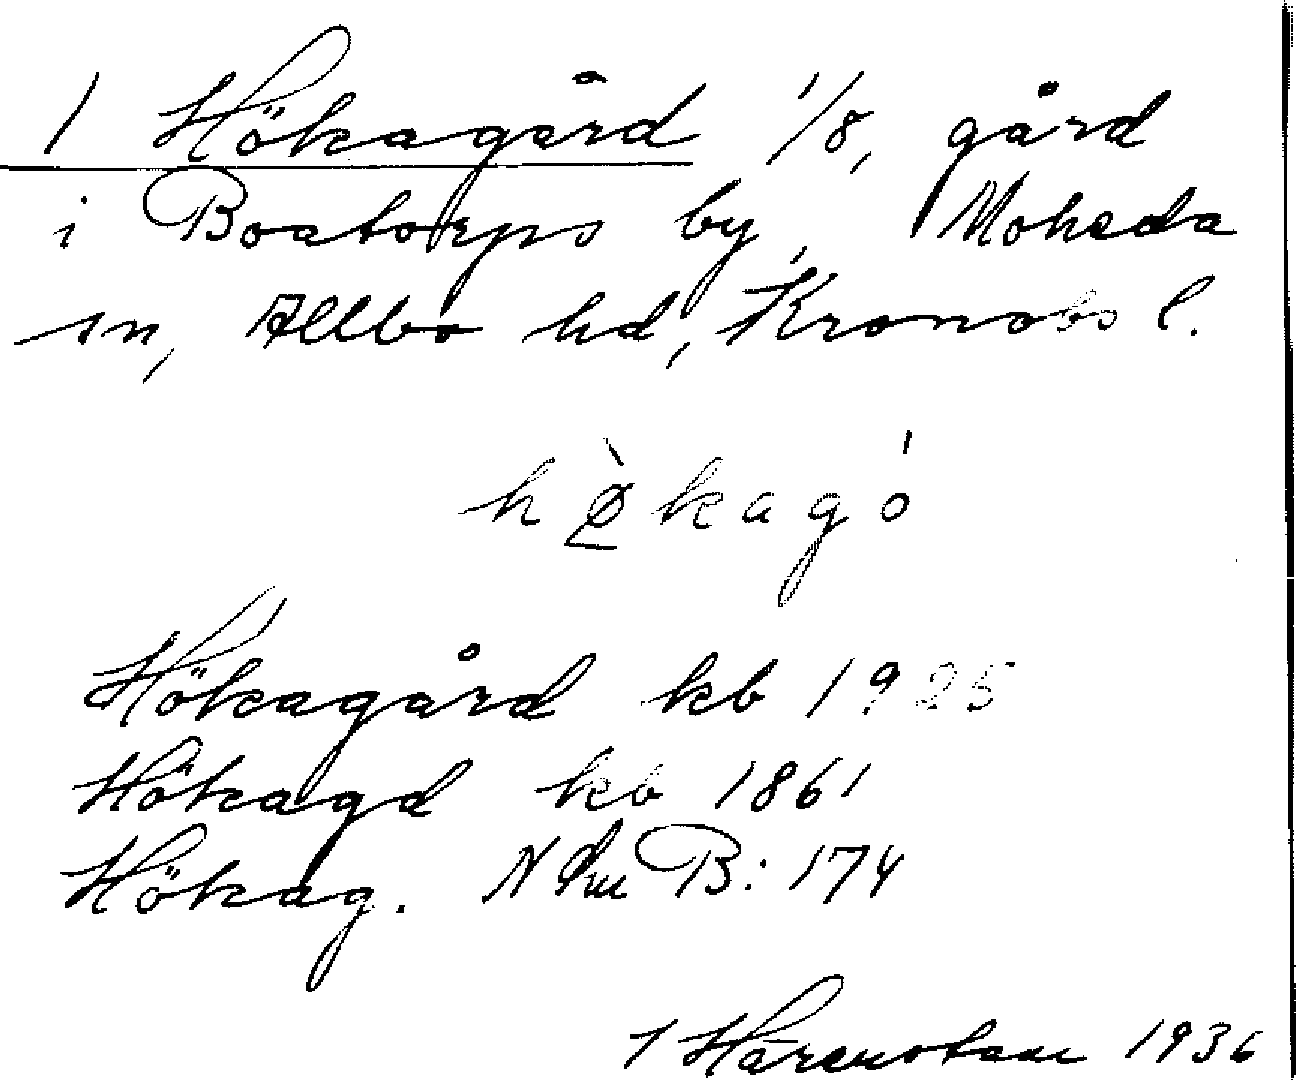 1 Hökagård 1/8, gård
i Boatorps by, Moheda
sn, Allbo hd, Kronobs l.
hø̀kagó
Hökagård kb 1925
Hökagd kb 1861
Hökag. B: 174
1936